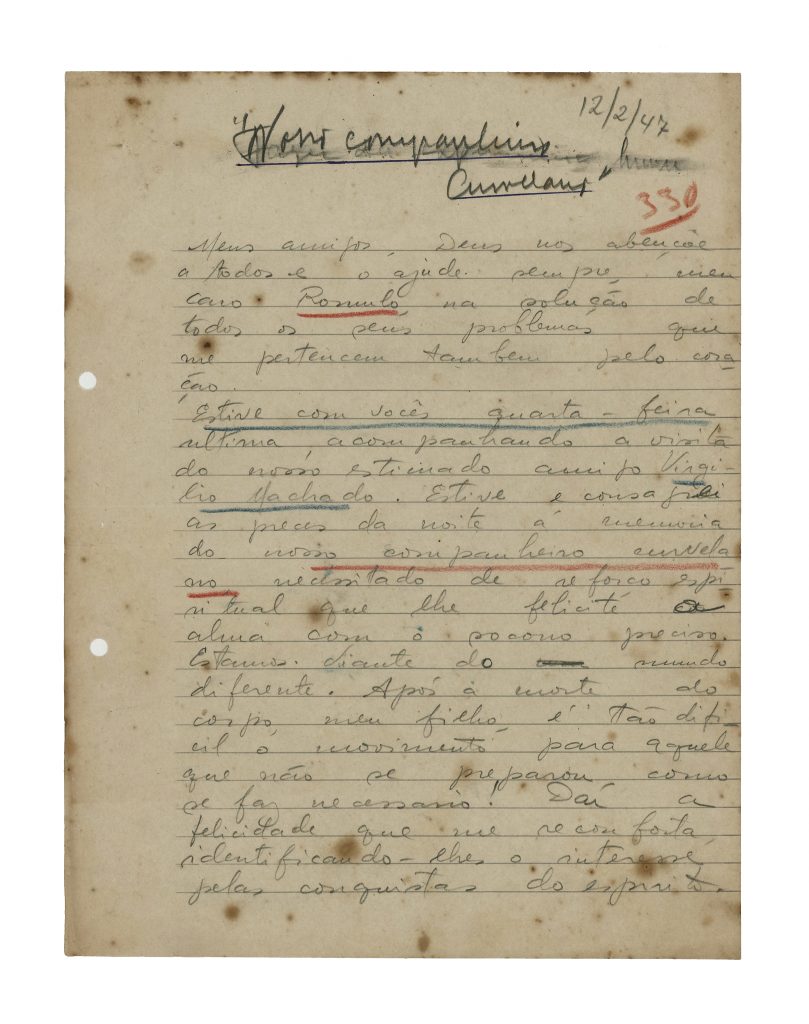 12/2/47
"Nosso companheiro
Curvelano"
330
Meus amigos, Deus nos abençõe
a todos e o ajude sempre, meu
caro Romulo na solução de
todos os seus problemas que
me pertencem tambem pelo cora
ção.
Estive com vocês quarta-feira
ultima, acompanhando a visita
do nosso estimado amigo Virgi-
lio Machado. Estive e consagrei
as preces da noite á memoria
do nosso companheiro curvela
no, necessitado de reforço espi
ritual que lhe felicite a
alma com o socorro preciso.
Estamos diante do mundo
diferente. Após a morte do
corpo, meu filho, é tão difi-
cil o movimento para aquele
que não se preparou como
se faz necessario! Daí a
felicidade que me reconforta,
identificando-lhes o interesse
pelas conquistas do espirito.